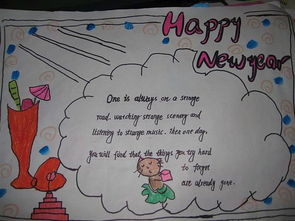 Happy
New year
One is always on a strange
road. watching strange scenery and
listening to strange music. Then one day,
you will find that the things you try hard
to forget
are already gone.